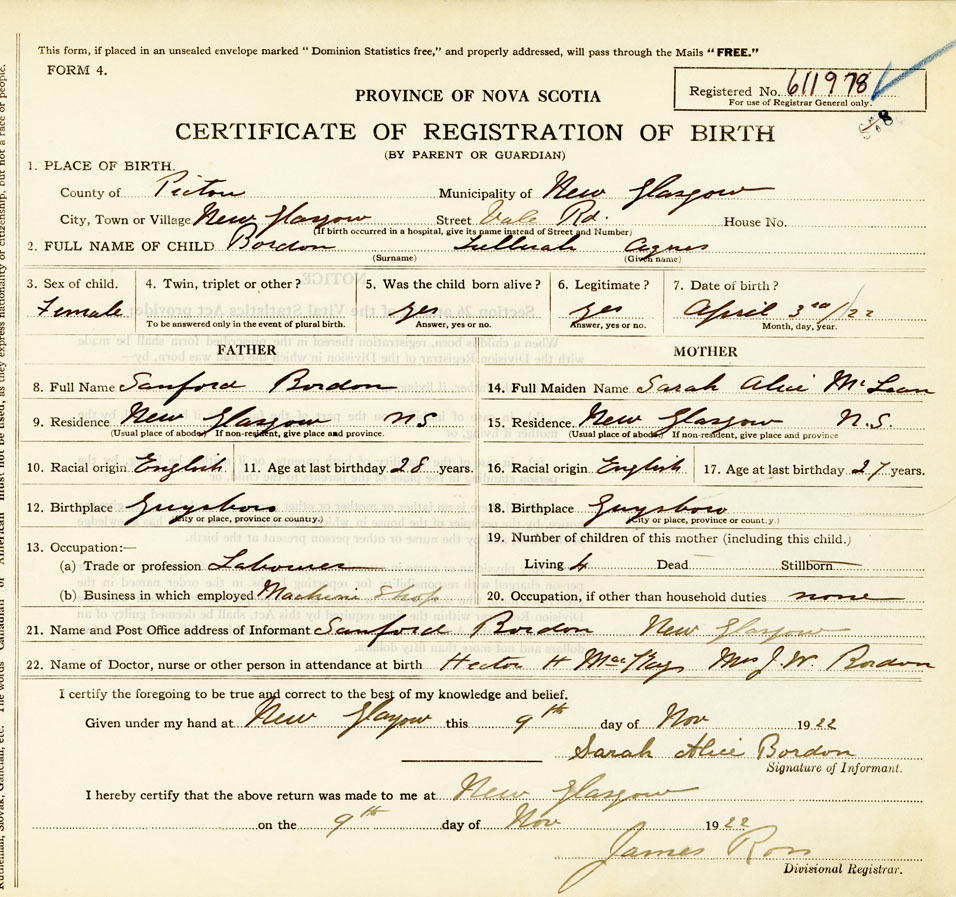 This form, if placed in an unsealed envelope marked "Dominion Statistics free," and properly addressed, will pass through the Mails "FREE."
FORM 4.
Registered No. 611978
For use of Registrar General only.
PROVINCE OF NOVA SCOTIA
CERTIFICATE OF REGISTRATION OF BIRTH
(BY PARENT OR GUARDIAN)
1. PLACE OF BIRTH.
County of Pictou Municipality of New Glasgow
City, Town or Village New Glasgow Street Vale Rd. House No.
(If birth occurred in a hospital, give its name instead of Street and Number)
2. FULL NAME OF CHILD Bordon Agnes
(Surname) (Given name)
3. Sex of child. 4. Twin, triplet or other? 5. Was the child born alive? 6. Legitimate? 7. Date of birth?
Female yes yes April 3rd/22
To be answered only in the event of plural birth. Answer, yes or no. Answer, yes or no. Month, day, year.
FATHER MOTHER
8. Full Name Sanford Bordon 14. Full Maiden Name Sarah Alice McLean
9. Residence New Glasgow NS 15. Residence New Glasgow N.S.
(Usual place of abode) If non-resident, give place and province. (Usual place of abode) If non-resident, give place and province
10. Racial origin English 11. Age at last birthday 28 years. 16. Racial origin English 17. Age at last birthday 27 years.
12. Birthplace Guysboro 18. Birthplace Guysboro
(City or place, province or country.) (City or place, province or country.)
13. Occupation:— 19. Number of children of this mother (including this child.)
(a) Trade or profession Labourer Living 4 Dead Stillborn
(b) Business in which employed Machine Shop 20. Occupation, if other than household duties none
21. Name and Post Office address of Informant Sanford Bordon New Glasgow
22. Name of Doctor, nurse or other person in attendance at birth Hector H MacKay Mrs J. W. Bordon
I certify the foregoing to be true and correct to the best of my knowledge and belief.
Given under my hand at New Glasgow this 9th day of Nov 1922
Sarah Alice Bordon
Signature of Informant.
I hereby certify that the above return was made to me at New Glasgow
on the 9th day of Nov 1922
James Ross
Divisional Registrar.